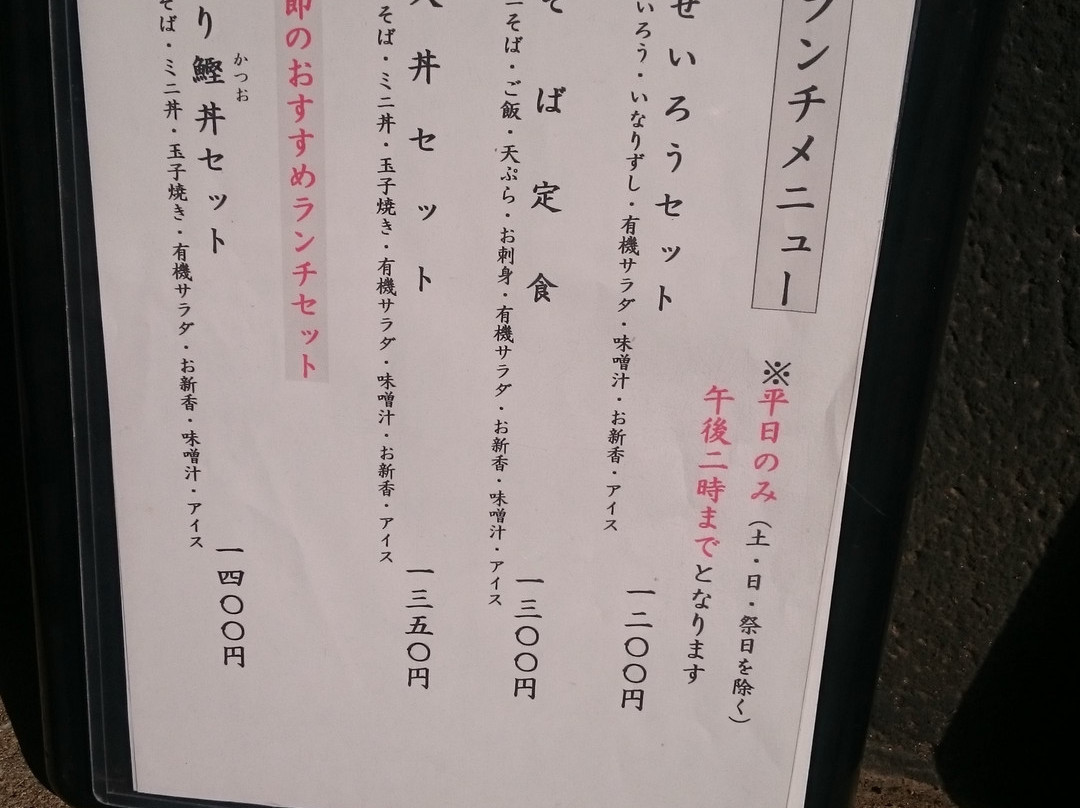 ンチメニュー
※平日のみ（土・日・祭日を除く）
午後二時までとなります
せいろうセット
いろう・いなりずし・有機サラダ・味噌汁・お新香・アイス
一二〇〇円
そば定食
そば・ご飯・天ぷら・お刺身・有機サラダ・お新香・味噌汁・アイス
一三〇〇円
丼セット
そば・ミニ丼・玉子焼き・有機サラダ・味噌汁・お新香・アイス
一三五〇円
節のおすすめランチセット
り鰹丼セット
かつお
そば・ミニ丼・玉子焼き・有機サラダ・お新香・味噌汁・アイス
一四〇〇円